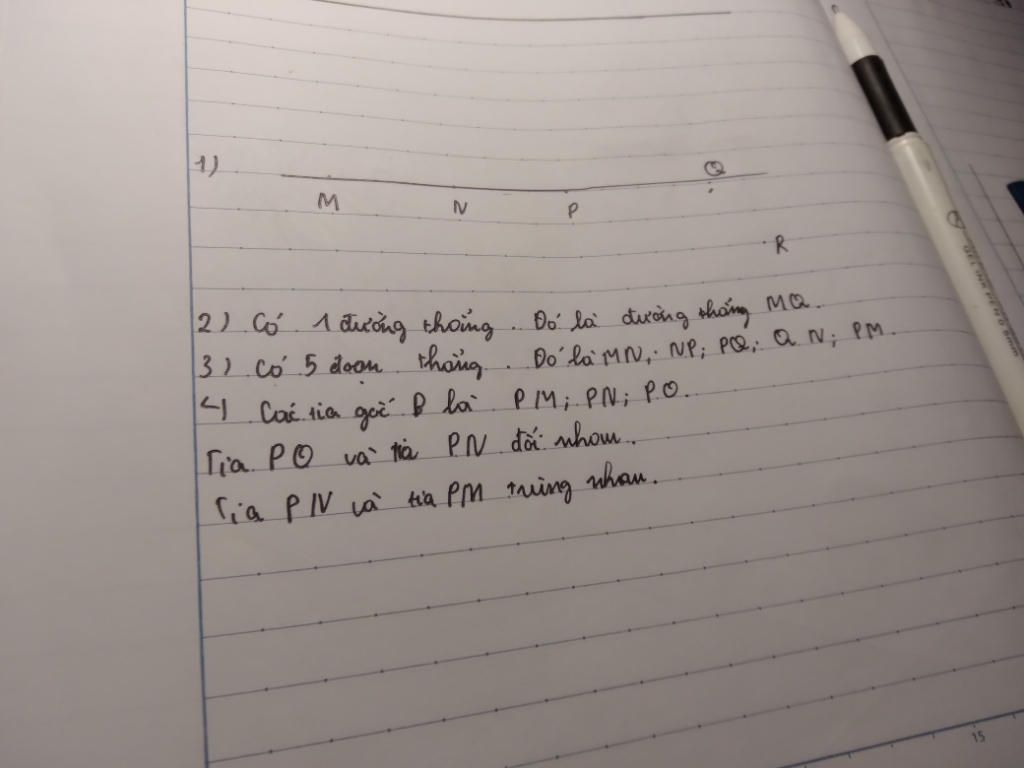 1)
M N P Q
R
2) Có 1 đường thẳng. Đó là đường thẳng MQ.
3) Có 5 đoạn thẳng. Đó là MN; NP; PQ; Q N; PM.
4) Các tia gốc P là PM; PN; PQ.
Tia PQ và tia PN đối nhau.
Tia PN và tia PM trùng nhau.
15